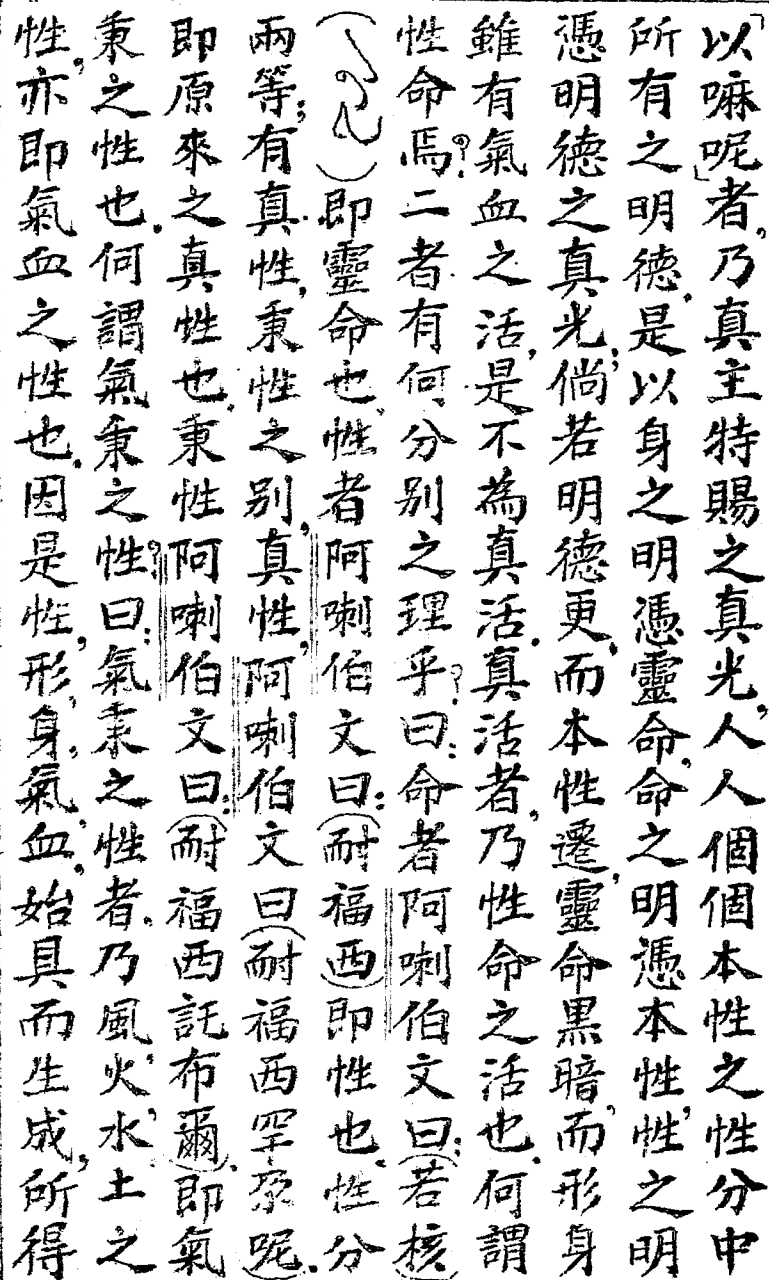 「以嘛呢」者，乃真主特賜之真光，人人個個本性之性分中
所有之明德，是以身之明憑靈命，命之明憑本性，性之明
憑明德之真光；倘若明德更，而本性遷，靈命黑暗，而形身
雖有氣血之活，是不為真活。真活者，乃性命之活也。何謂
性命焉？二者有何分別之理乎？曰：命者阿喇伯文曰：（若核
）即靈命也。性者阿喇伯文曰：（耐福西）即性也。性分
兩等；有真性，秉性之别，真性，阿喇伯文曰（耐福西罕尕呢）
即原來之真性也。秉性阿喇伯文曰：（耐福西託布爾）。即氣
秉之性也。何謂氣秉之性？曰：氣秉之性者，乃風，火，水，土之
性，亦即氣血之性也。因是性，形，身，氣，血，始具而生成，所得